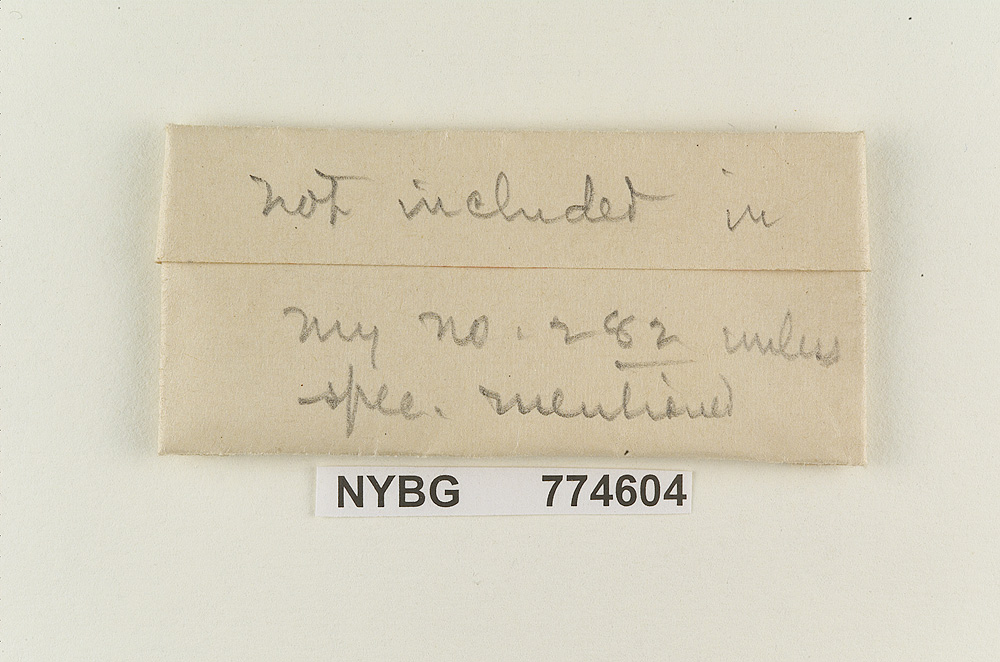 not included in
my no. 282 unless
spec. mentioned
NYBG 774604